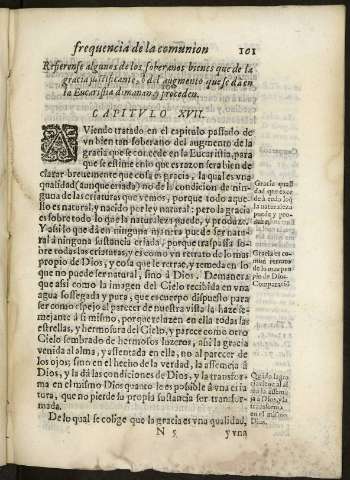 frequencia de la comunion 101
Refierense algunos de los soberanos bienes que de la
gracia justificante, ò del augmento que se dà en
la Eucaristia dimanan, y proceden.
CAPITULO XVII.
AViendo tratado en el capitulo passado de
vn bien tan soberano del augmento de la
gracia que se concede en la Eucaristia, para
que se estime en lo que es razon serà bien de
clarar brevemente que cosa es gracia, la qual es vna
qualidad (aunque criada) no de la condicion de nin-
guna de las criaturas que vemos, porque todo aque-
llo es natural, y nacido por ley natural: pero la gracia
es sobre todo lo que la naturaleza puede, y produze.
Y assi lo que dà en ninguna manera puede ser natu-
ral à ninguna sustancia criada, porque traspassa so-
bre todas las criaturas, y es como vn retrato de lo mas
propio de Dios, y cosa que le retrae, y remeda en lo
que no puede ser natural, sino à Dios. De manera
que assi como la imagen del Cielo recibida en vna
agua sossegada y pura, que es cuerpo dispuesto para
ser como espejo al parecer de nuestra vista la haze se-
mejante à si mismo, porque reluzen en ella todas las
estrellas, y hermosura del Cielo, y parece como otro
Cielo sembrado de hermosos luzeros, assi la gracia
venida al alma, y assentada en ella, no al parecer de
los ojos; sino en el hecho de la verdad, la assemeja à
Dios, y la dà las condiciones de Dios, y la transfor-
ma en el mismo Dios quanto le es possible à vna cria
tura, que no pierde su propia sustancia ser transfor-
mada.
De lo qual se colige que la gracia es vna qualidad,
N 5 y vna
Gracia quali
dad que exce
de à todo lo q̃
la naturaleza
puede y pro-
duze.
Gracia es co-
mo vn retrato
de lo mas pro
pio de Dios.
Comparaciõ
al
ma en
Dios.